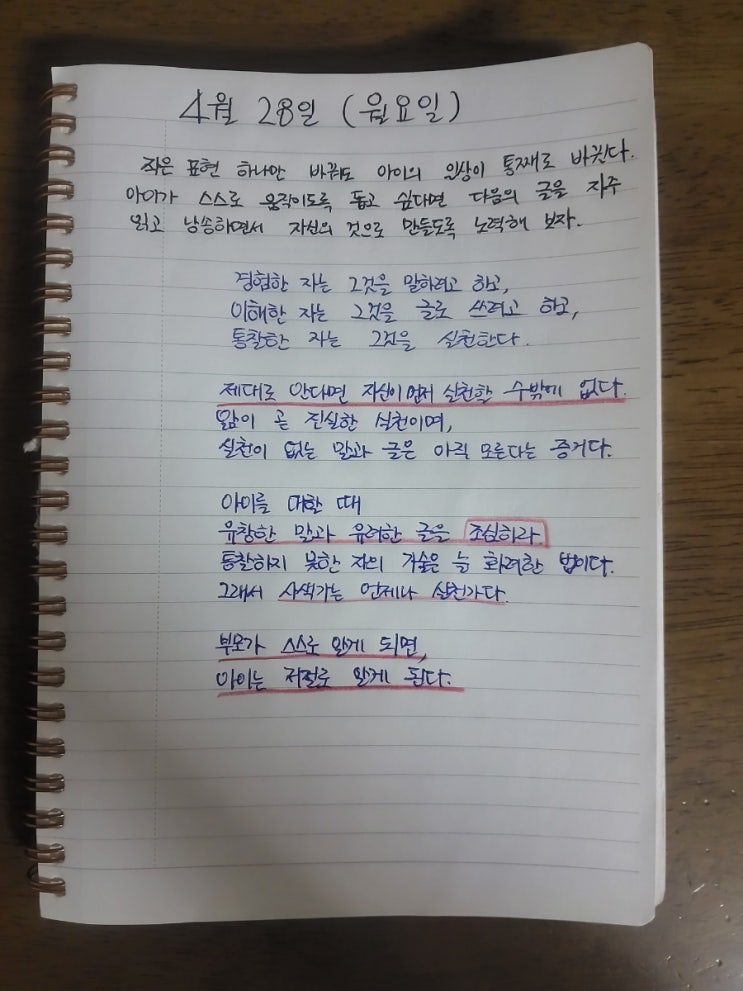 4월 28일 (월요일)
작은 표현 하나만 바꿔도 아이의 일상이 통째로 바뀐다.
아이가 스스로 움직이도록 돕고 싶다면 다음의 글을 자주
읽고 낭송하면서 자신의 것으로 만들도록 노력해 보자.
경험한 자는 그것을 말하려고 하고,
이해한 자는 그것을 글로 쓰려고 하고,
통찰한 자는 그것을 실천한다.
제대로 안다면 자신이 먼저 실천할 수밖에 없다.
앎이 곧 진실한 실천이며,
실천이 없는 말과 글은 아직 모른다는 증거다.
아이를 대할 때
유창한 말과 유려한 글을 조심하라.
통찰하지 못한 자의 기술은 늘 화려한 법이다.
그래서 사색가는 언제나 실천가다.
부모가 스스로 알게 되면,
아이는 저절로 알게 된다.